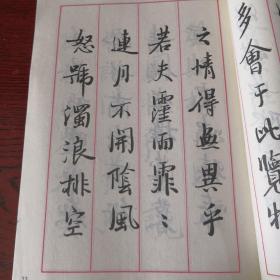 多會于此覽物
之情得無異乎
若夫霪雨霏〻
連月不開陰風
怒號濁浪排空